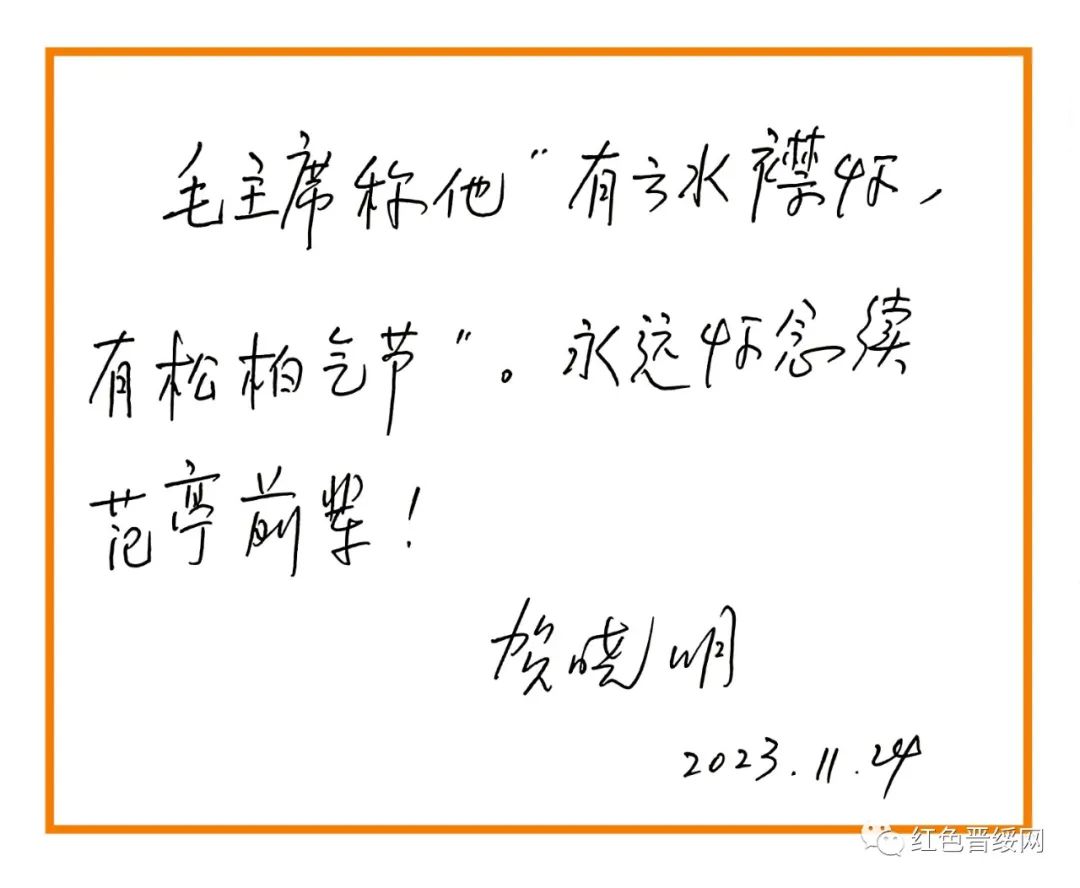 毛主席称他“有云水襟怀，
有松柏气节”。永远怀念续
范亭前辈！
贺晓明
2023.11.24
红色晋绥网